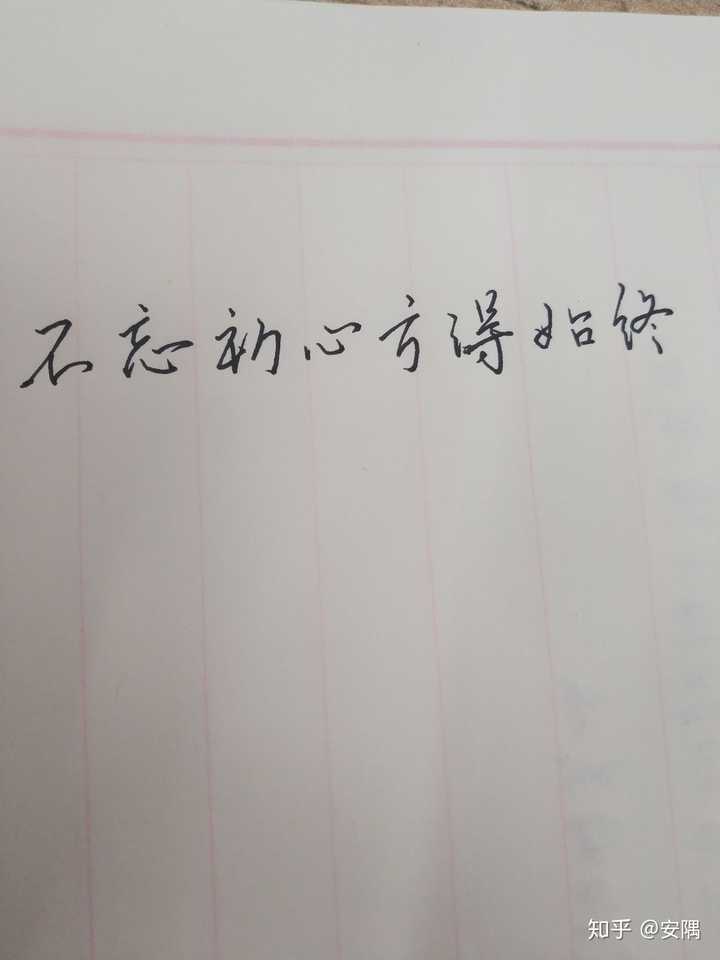 不忘初心方得始终
知乎 @安隅